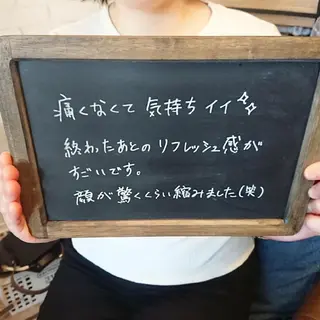 痛くなくて 気持ちイイ✨
終わったあとの リフレッシュ感が
すごいです。
顔が驚くくらい縮みました(笑)